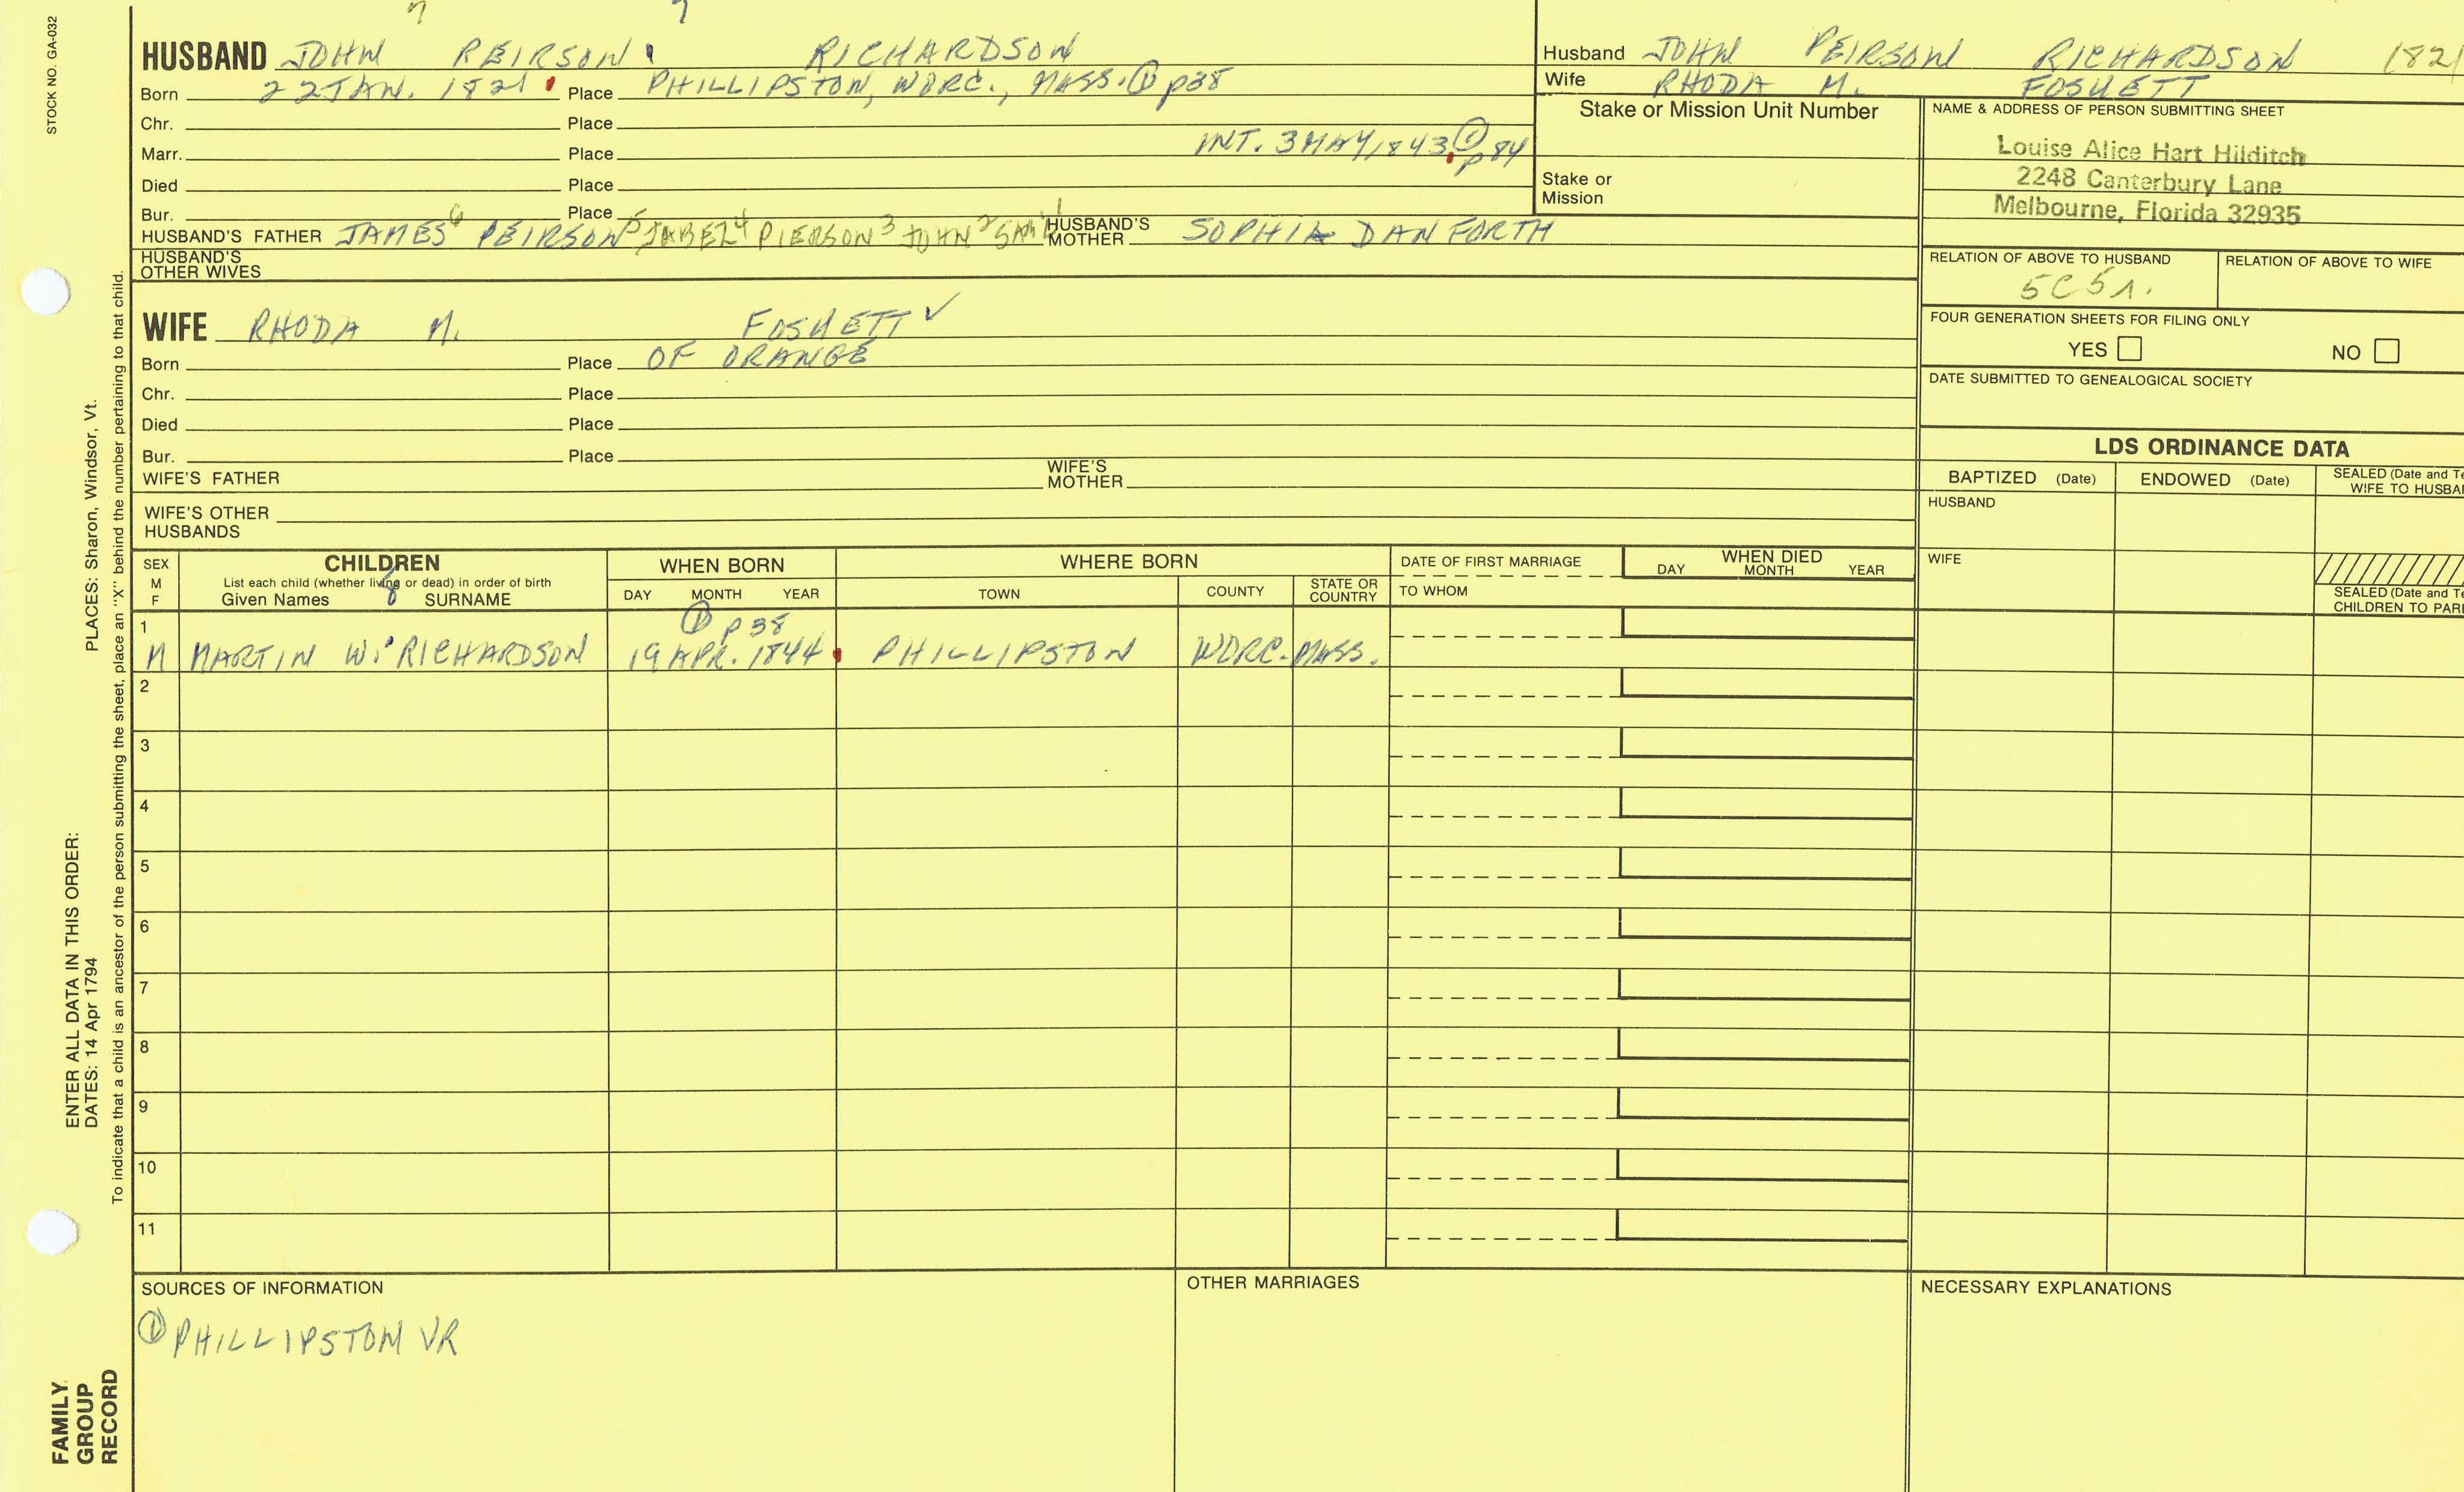 STOCK NO. GA-032
7 7
HUSBAND JOHN PEIRSON RICHARDSON
Born 22 JAN. 1821 Place PHILLIPSTON, WORC., MASS. ① p38
Chr. Place
INT. 3 MAY 1843 ① p84
Marr. Place
Died Place
Bur. Place
HUSBAND'S FATHER JAMES 6 PEIRSON 5 JABEZ 4 PIERSON 3 JOHN 2 SAM'L 1 HUSBAND'S MOTHER SOPHIA DANFORTH
HUSBAND'S OTHER WIVES
WIFE RHODA M. FOSKETT ✓
Born Place OF ORANGE
Chr. Place
Died Place
Bur. Place
WIFE'S FATHER WIFE'S MOTHER
WIFE'S OTHER HUSBANDS
Husband JOHN PEIRSON RICHARDSON 1821
Wife RHODA M. FOSKETT
Stake or Mission Unit Number
Stake or Mission
NAME & ADDRESS OF PERSON SUBMITTING SHEET
Louise Alice Hart Hilditch
2248 Canterbury Lane
Melbourne, Florida 32935
RELATION OF ABOVE TO HUSBAND RELATION OF ABOVE TO WIFE
5C5r.
FOUR GENERATION SHEETS FOR FILING ONLY
YES NO
DATE SUBMITTED TO GENEALOGICAL SOCIETY
LDS ORDINANCE DATA
BAPTIZED (Date) ENDOWED (Date) SEALED (Date and Te
WIFE TO HUSBA
HUSBAND
WIFE
SEALED (Date and Te
CHILDREN TO PAR
SEX M F
CHILDREN
List each child (whether living or dead) in order of birth
Given Names 8 SURNAME
WHEN BORN
DAY MONTH YEAR
WHERE BORN
TOWN COUNTY STATE OR COUNTRY
DATE OF FIRST MARRIAGE
TO WHOM
WHEN DIED
DAY MONTH YEAR
1 ① p38
M MARTIN W. RICHARDSON 19 APR. 1844 PHILLIPSTON WORC. MASS.
2
3
4
5
6
7
8
9
10
11
SOURCES OF INFORMATION
① PHILLIPSTON VR
OTHER MARRIAGES
NECESSARY EXPLANATIONS
ENTER ALL DATA IN THIS ORDER:
DATES: 14 Apr 1794 PLACES: Sharon, Windsor, Vt.
To indicate that a child is an ancestor of the person submitting the sheet, place an "X" behind the number pertaining to that child.
FAMILY
GROUP
RECORD